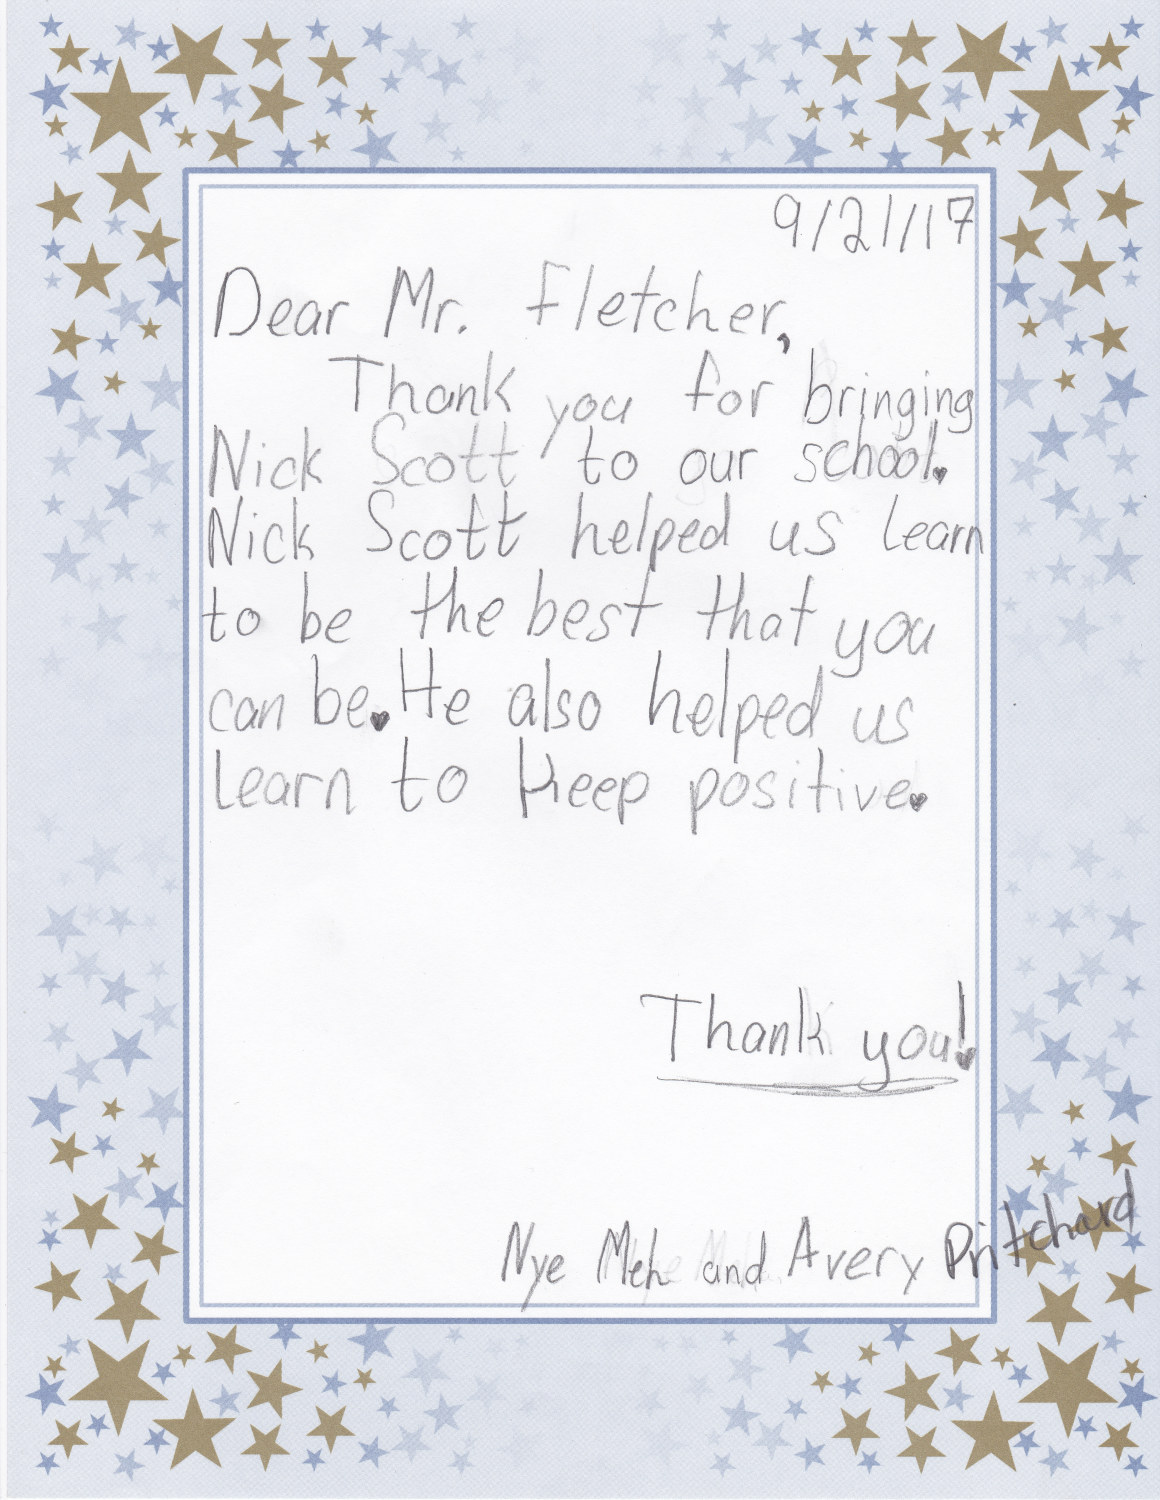 9/21/17
Dear Mr. Fletcher,
Thank you for bringing
Nick Scott to our school.
Nick Scott helped us learn
to be the best that you
can be. He also helped us
learn to keep positive.
Thank you!
Nye Meh and Avery Pritchard